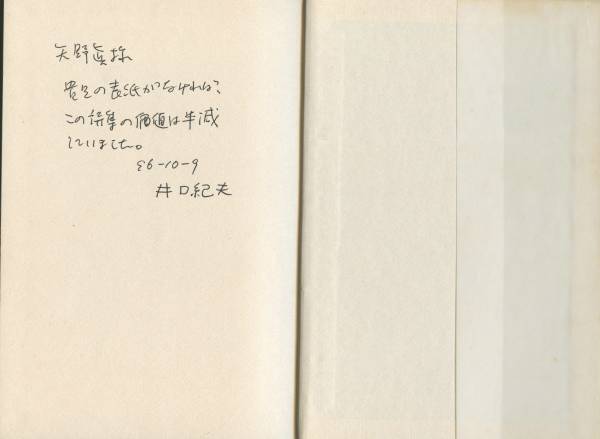 矢野眞様
貴兄の表紙がなければ、
この詩集の価値は半減
していました。
96-10-9
井口紀夫